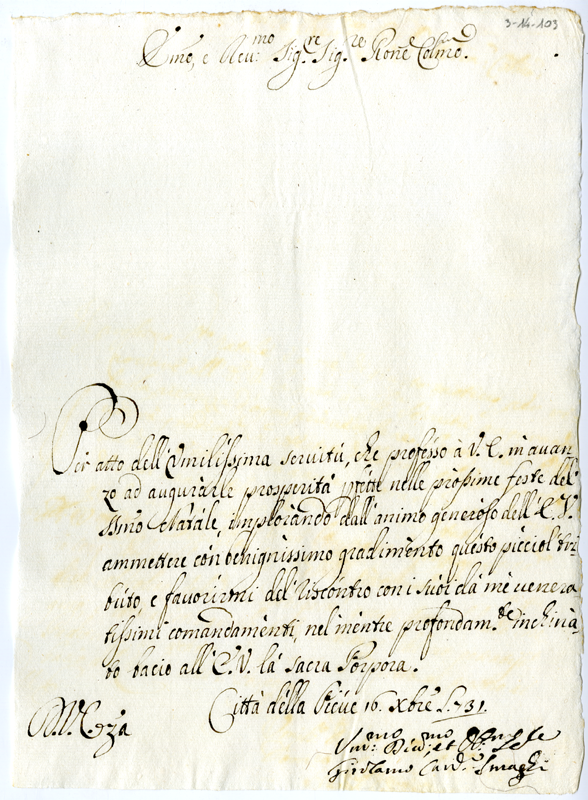 3-14-103
Em̃o, e Reu:mo Sig:re Sig:re Pron̄e Colm̃o.
Per atto dell'Vmilissima seruitù, che professo à V. E. m'auan
zo ad augurarle prosperità nelle prossime feste del
SSmo Natale, implorando dall'animo generoso dell'E. V.
ammettere con benignissimo gradimento questo picciol tri
buto, e fauorirmi del riscontro con i suoi da me venera
tissimi comandamenti, nel mentre profondam.te inchina
to bacio all'E. V. la sacra Porpora.
Città della Pieue 16. Xbre 1731.
Vm:mo Diu:mo et
Girolamo Card: